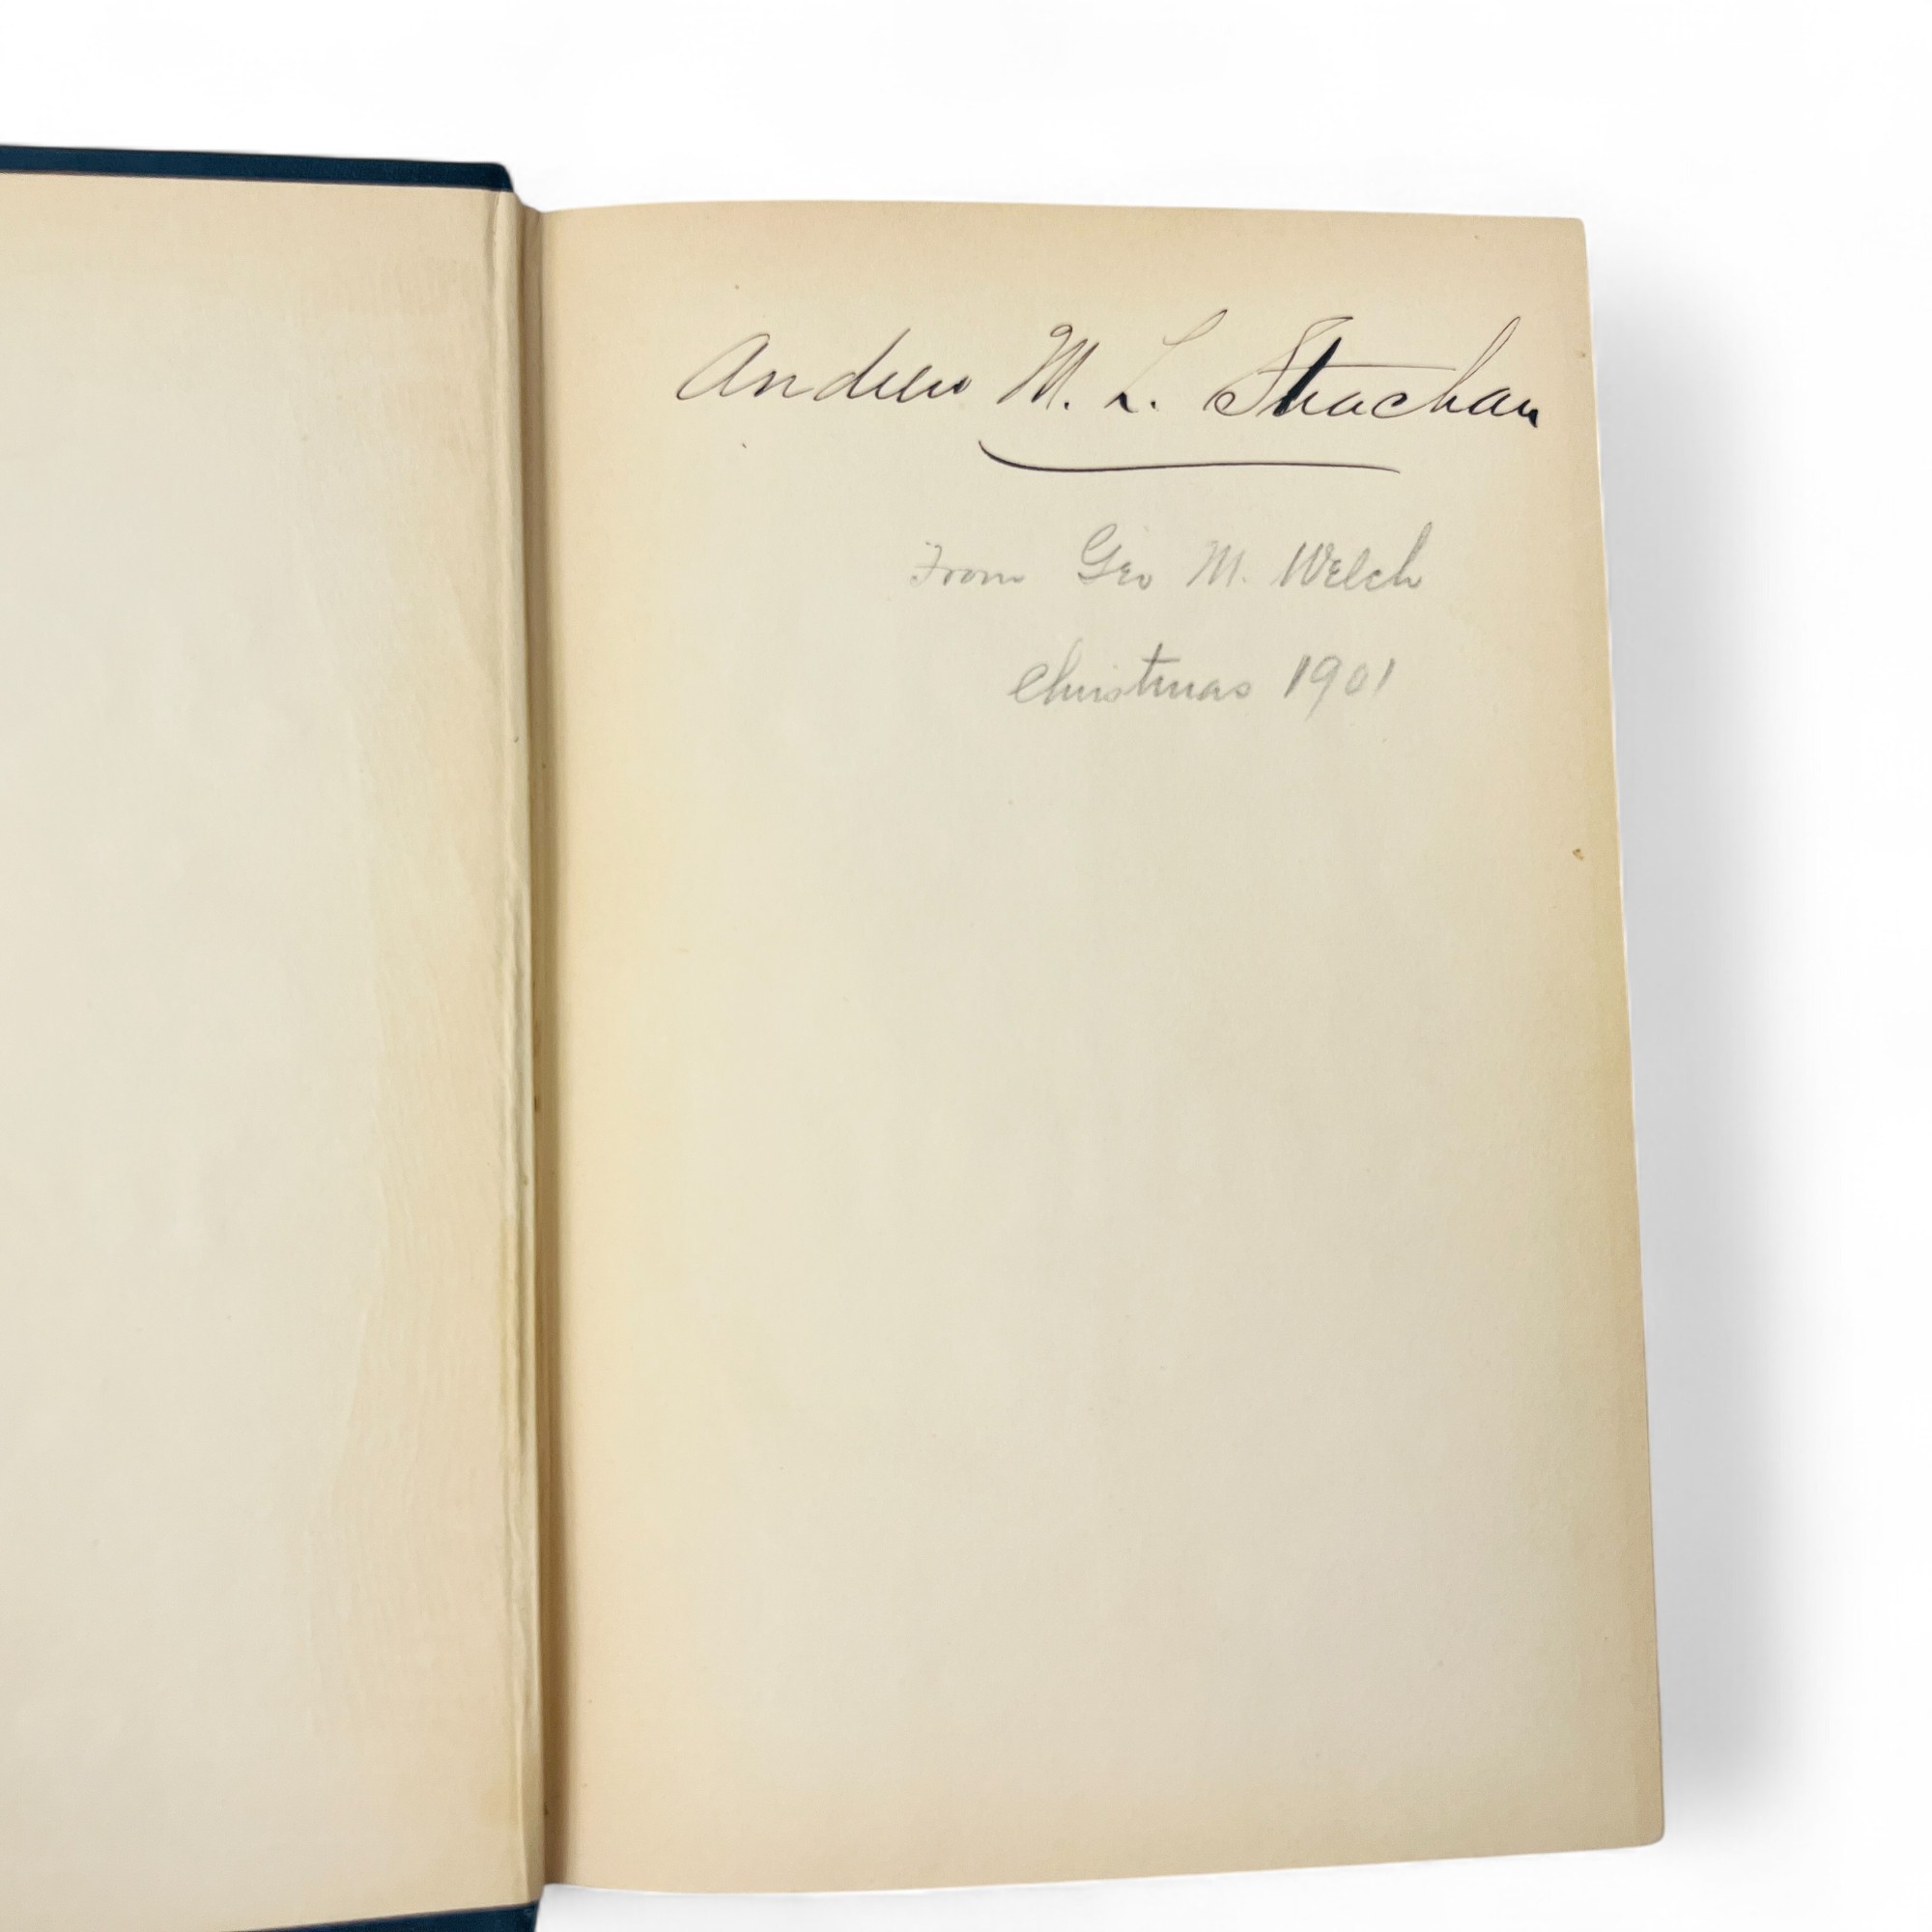 Andrew M. L. Strachan
From Geo M. Welch
Christmas 1901